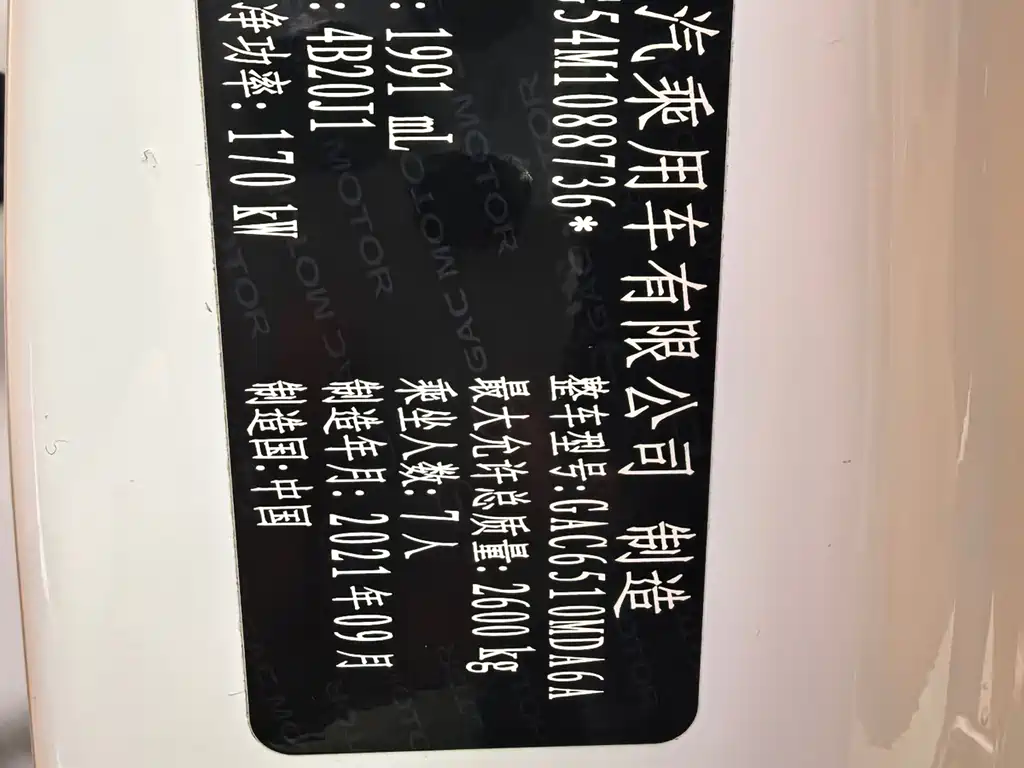 汽乘用车有限公司 制造
G54M108736* 整车型号:GAC6510MDA6A
最大允许总质量:2600kg
:1991 mL 乘坐人数:7人
:4B20J1 制造年月:2021年09月
净功率:170 kW 制造国:中国
GAC MOTOR